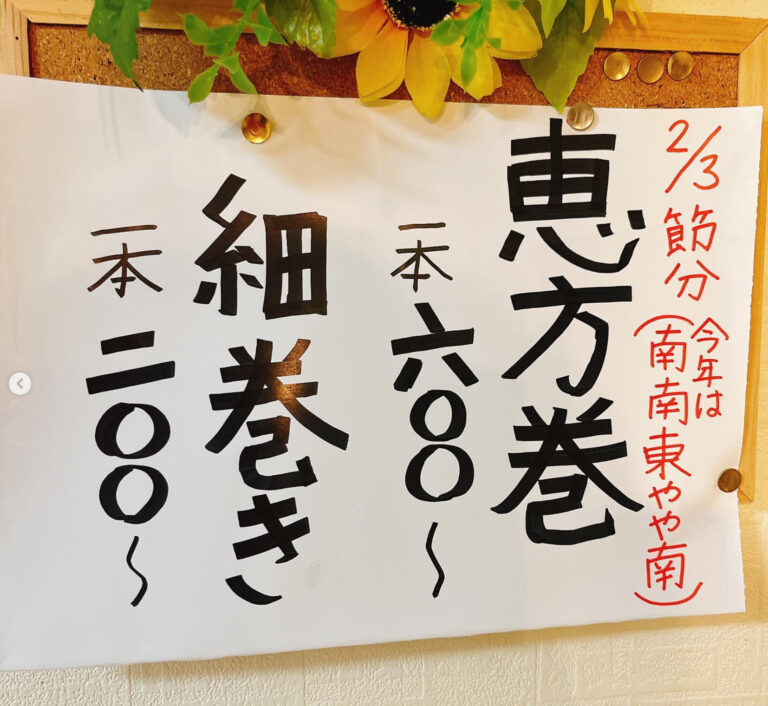 2/3 節分
今年は
(南南東やや南)
恵方巻
一本 六〇〇～
細巻き
一本 二〇〇～